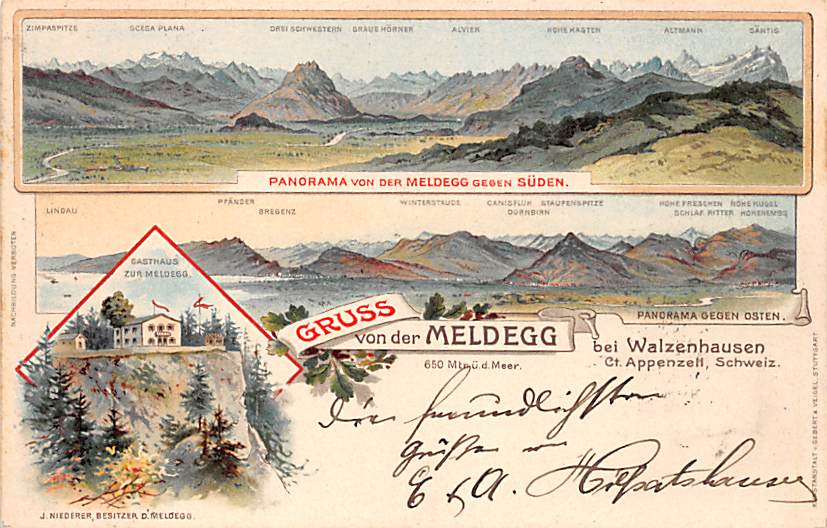 ZIMPASPITZE SCESA PLANA DREI SCHWESTERN GRAUE HÖRNER ALVIER HOHE KASTEN ALTMANN SÄNTIS
PANORAMA VON DER MELDEGG GEGEN SÜDEN.
LINDAU PFÄNDER BREGENZ WINTERSTAUDE CANISFLUH STAUFENSPITZE DORNBIRN HOHE FRESCHEN HOHE KUGEL
SCHLAF. RITTER HOHENEMBS
NACHBILDUNG VERBOTEN
GASTHAUS
ZUR MELDEGG.
PANORAMA GEGEN OSTEN.
GRUSS
von der MELDEGG
650 Mtr. ü. d. Meer.
bei Walzenhausen
Ct. Appenzell, Schweiz.
Die freundlichsten
Grüße
E & A.
J. NIEDERER, BESITZER D. MELDEGG.
KUNSTANSTALT V. GEBERT & VEIGEL, STUTTGART